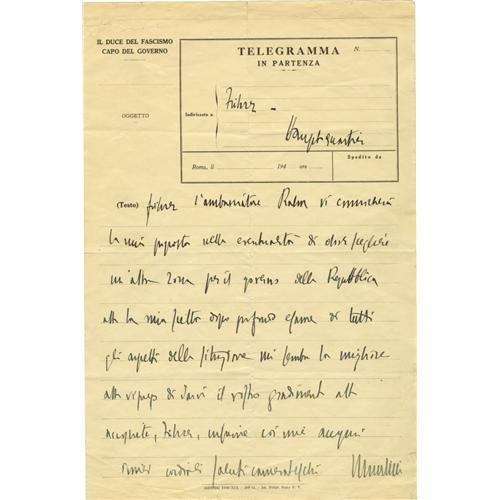 IL DUCE DEL FASCISMO
CAPO DEL GOVERNO
OGGETTO
TELEGRAMMA N.
IN PARTENZA
Indirizzato a Führer
Hauptquartier
Roma, li 194 ore
Spedito da
(Testo) Führer l'ambasciatore Rahn vi comunicherà
la mia proposta nella eventualità di dover scegliere
un'altra zona per il governo della Repubblica
alt la mia scelta dopo profondo esame di tutti
gli aspetti della situazione mi sembra la migliore
alt vi prego di darvi il vostro gradimento alt
accogliete, Führer, insieme coi miei auguri
cordiali saluti camerateschi Mussolini